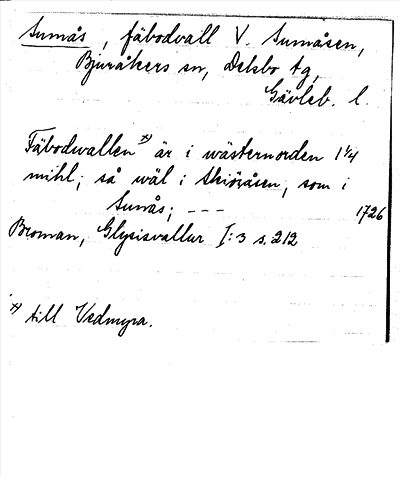 Sunnås, fäbodvall V. Sunnåsen,
Bjuråkers sn, Delsbo tg,
Gävleb. l.
Fäbodwallen x) är i wästernorden 1 1/4
mihl; så wäl i Skiöråsen, som i
Sunås; ---
1726
Broman, Glysisvallur I:3 s. 212
x) till Vedmyra.